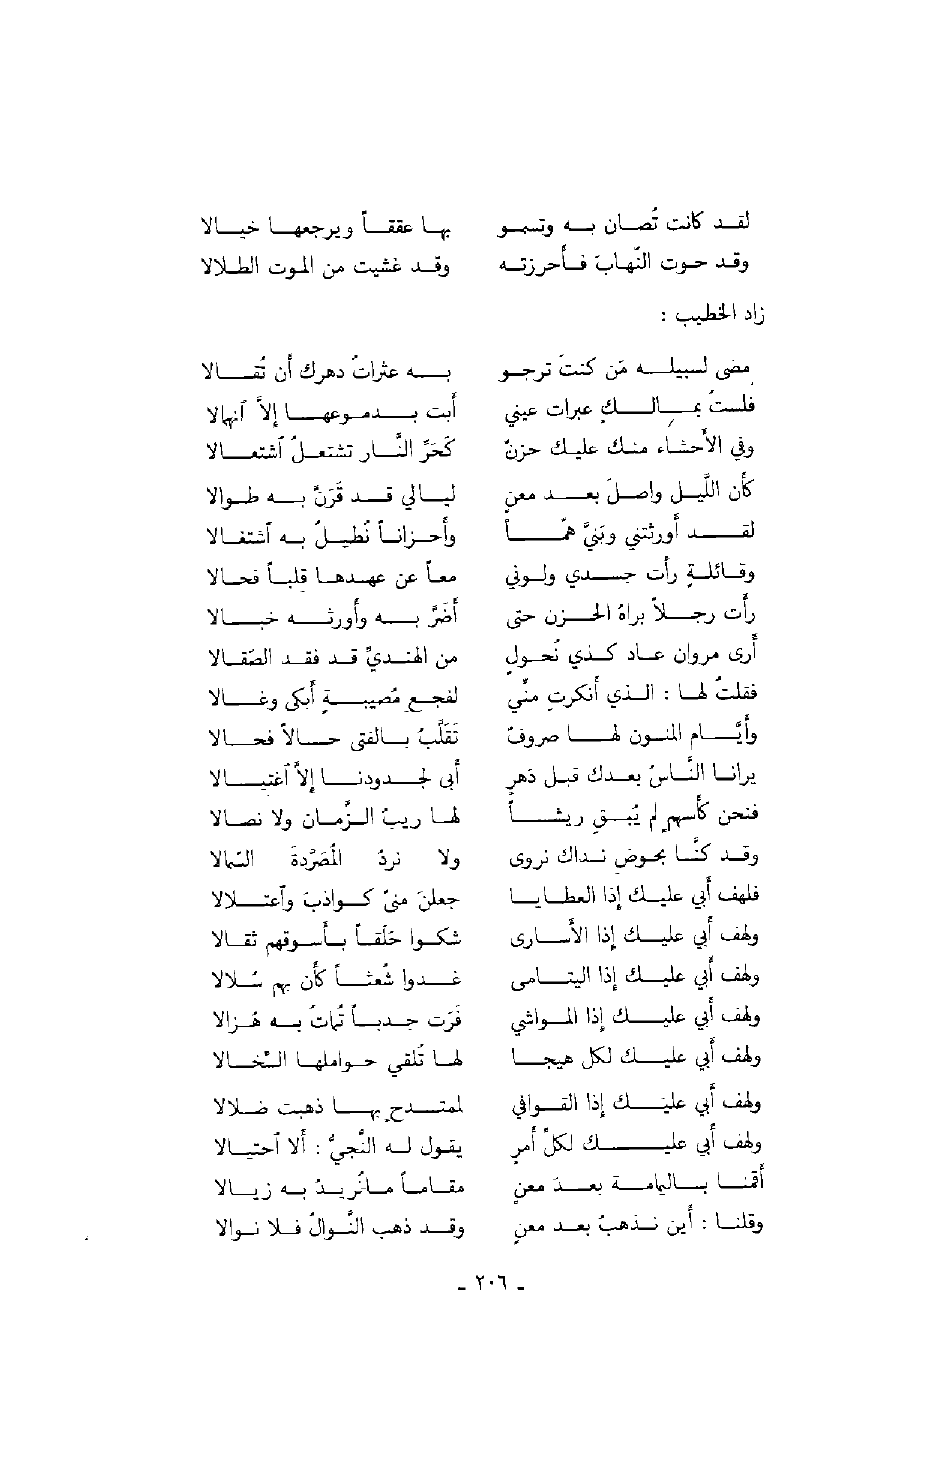 لقد كانت تُصان به وتسمو بها عققاً ويرجعها خيالا
وقد حوت النّهابَ فأحرزته وقد غشيت من الموت الطلالا
زاد الخطيب :
مضى لسبيله مَن كنتَ ترجو به عثراتُ دهرك أن تُقالا
فلستُ بمالك عبرات عيني أبت بدموعها إلاّ آنهالا
وفي الأحشاء منك عليك حزنٌ كحَرّ النّار تشتعلُ آشتعالا
كأن اللّيل واصلَ بعد معنٍ ليالي قد قُرنّ به طوالا
لقد أورثتني وبنيّ همّاً وأحزاناً نُطيلُ به آشتغالا
وقائلةٍ رأت جسدي ولوني معاً عن عهدها قلبا فحالا
رأت رجلاً براهُ الحزن حتى أضرّ به وأورثه خبالا
أرى مروان عاد كذي نُحول من الهنديّ قد فقد الصّقالا
فقلتُ لها : الذي أنكرت منّي لفجع مُصيبةٍ أبكى وغالا
وأيّام المنون لها صروفٌ تَقَلَّبُ بالفتى حالاً فحالا
يرانا النّاسُ بعدك قبل دهر أبى لجدودنا إلاّ آغتيالا
فنحن كأسهم لم يُبق ريشاً لها ريبُ الزّمان ولا نصالا
وقد كنّا بحوض نداك نروى ولا نردُ المُصَرّدة السّجالا
فلهف أبي عليك إذا العطايا جعلن منىً كواذبَ وآعتلالا
ولهف أبي عليك إذا الأسارى شكوا حلقاً بأسوقهم ثقالا
ولهف أبي عليك إذا اليتامى غدوا شُعثاً كأن بهم سُلالا
ولهف أبي عليك إذا المواشي قرت جدباً تُمَاتُ به هُزالا
ولهف أبي عليك لكل هيجا لها تُلقي حواملها السّخالا
ولهف أبي عليك إذا القوافي لممتدح بها ذهبت ضلالا
ولهف أبي عليك لكلّ أمرٍ يقول له النّجيّ : ألا آحتيالا
أقمنا باليمامة بعد معنٍ مقاماً ما نُريدُ به زيالا
وقلنا : أين نذهبُ بعد معن وقد ذهب النّوالُ فلا نوالا
- ٢٠٦ -